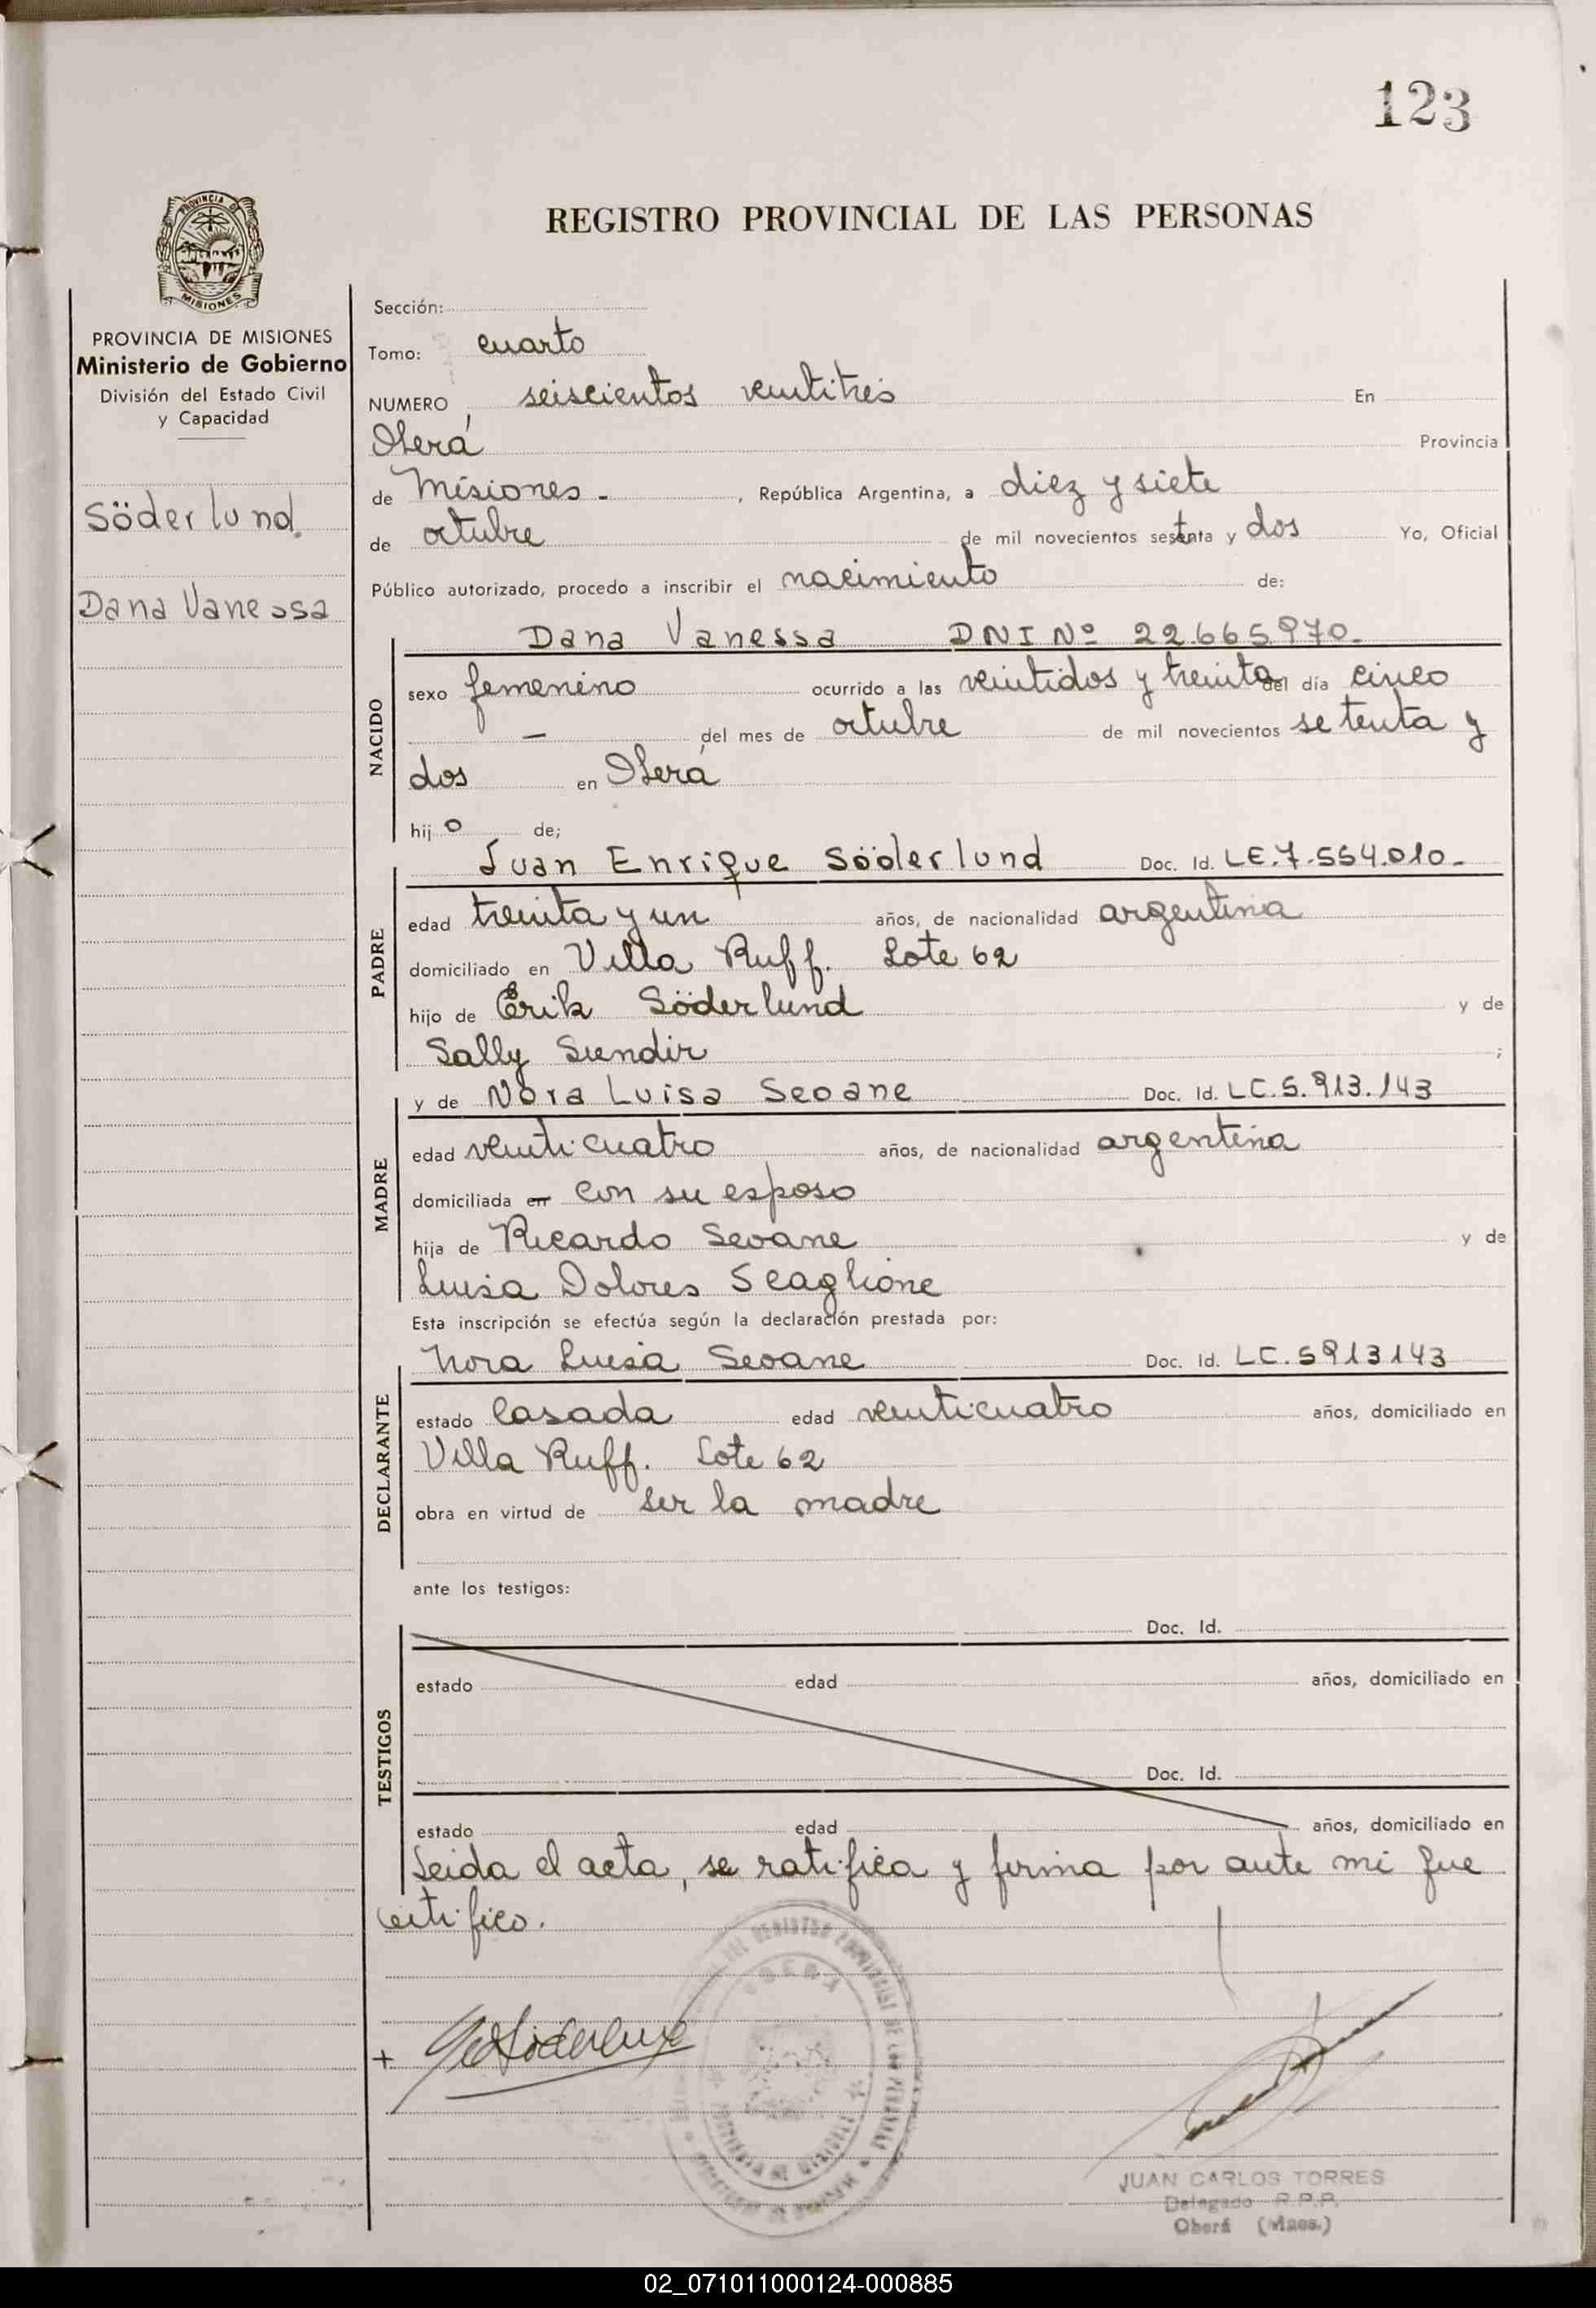 123
REGISTRO PROVINCIAL DE LAS PERSONAS
PROVINCIA DE
MISIONES
PROVINCIA DE MISIONES
Ministerio de Gobierno
División del Estado Civil
y Capacidad
Söderlund.
Dana Vanessa
Sección:
Tomo: cuarto
NUMERO seiscientos veintitrés En
Oberá Provincia
de Misiones - , República Argentina, a diez y siete
de octubre de mil novecientos setenta y dos Yo, Oficial
Público autorizado, procedo a inscribir el nacimiento de:
Dana Vanessa DNI Nº 22.665.970.-
NACIDO
sexo femenino ocurrido a las veintidos y treinta del día cinco
— del mes de octubre de mil novecientos setenta y
dos en Oberá
hijo de;
Juan Enrique Söderlund Doc. Id. LE.7.554.010.-
PADRE
edad treinta y un años, de nacionalidad argentina
domiciliado en Villa Ruff. Lote 62
hijo de Erik Söderlund y de
Sally Sundir ;
y de Nora Luisa Seoane Doc. Id. LC.5.913.143
MADRE
edad veinticuatro años, de nacionalidad argentina
domiciliada en con su esposo
hija de Ricardo Seoane y de
Luisa Dolores Scaglione
Esta inscripción se efectúa según la declaración prestada por:
Nora Luisa Seoane Doc. Id. LC.5913143
DECLARANTE
estado Casada edad veinticuatro años, domiciliado en
Villa Ruff. Lote 62
obra en virtud de ser la madre
ante los testigos:
Doc. Id.
TESTIGOS
estado edad años, domiciliado en
Doc. Id.
estado edad años, domiciliado en
Leida el acta, se ratifica y firma por ante mi que
certifico.
+
JUAN CARLOS TORRES
Delegado R.P.P.
Oberá (Mnes.)
02_071011000124-000885